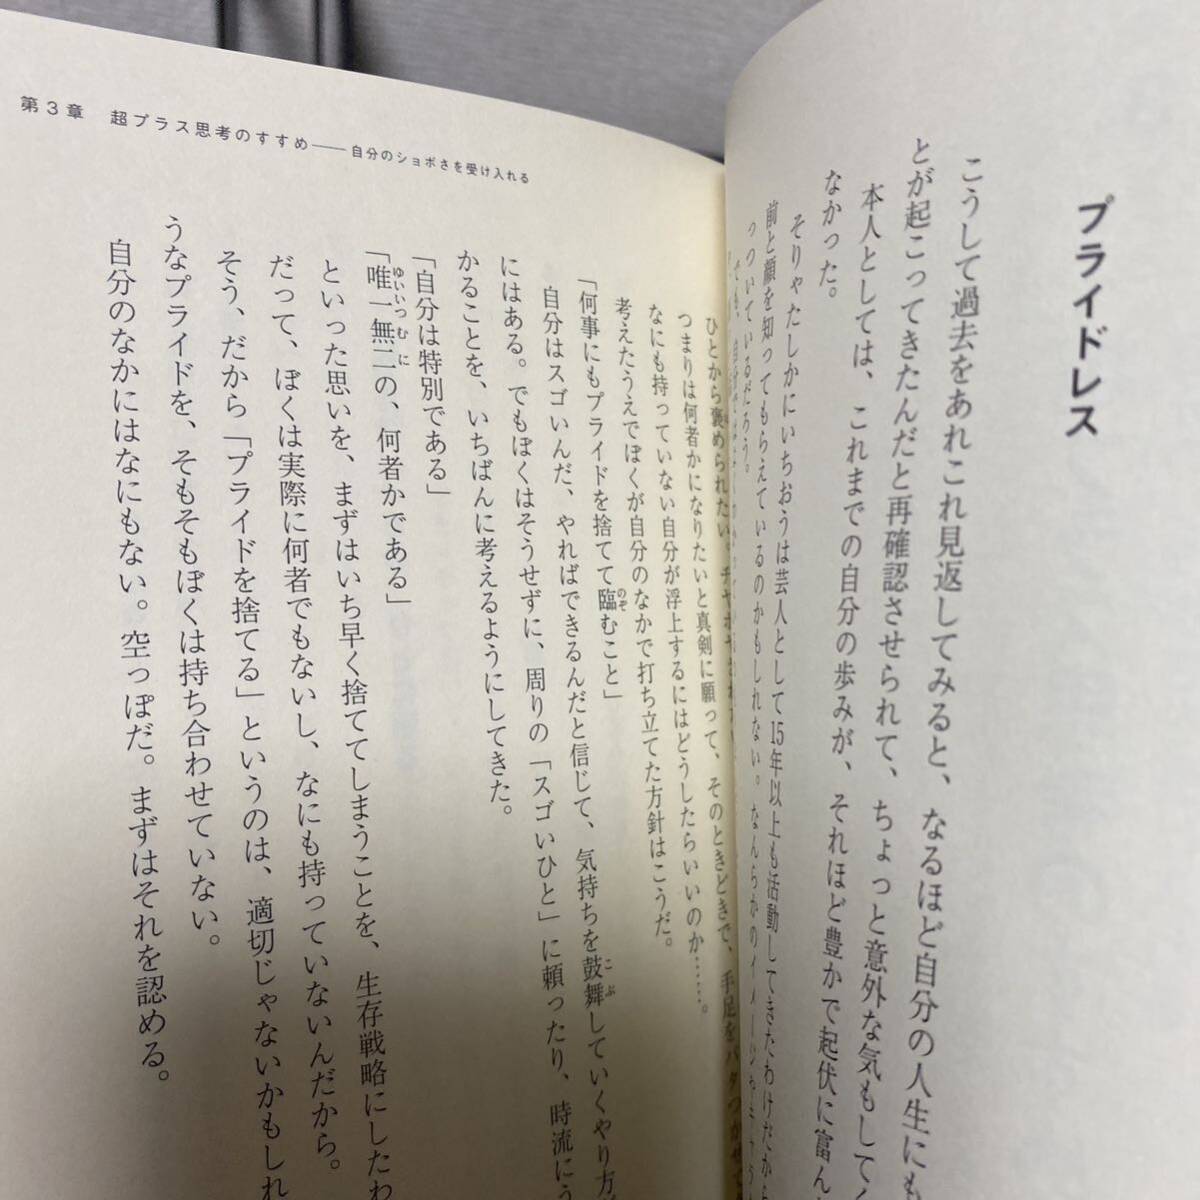 プライドレス
こうして過去をあれこれ見返してみると、なるほど自分の人生にも
とが起こってきたんだと再確認させられて、ちょっと意外な気もしてく
本人としては、これまでの自分の歩みが、それほど豊かで起伏に富ん
なかった。
そりゃたしかにいちおうは芸人として15年以上も活動してきたわけだから
前と顔を知ってもらえているのかもしれない。なんらかのイメージやキャラ
っついているだろう。
でも、
ひとから褒められたい、チヤホヤされ
つまりは何者かになりたいと真剣に願って、そのときどきで、手足をバタつかせて
なにも持っていない自分が浮上するにはどうしたらいいのか……。
考えたうえでぼくが自分のなかで打ち立てた方針はこうだ。
「何事にもプライドを捨てて臨むこと」
自分はスゴいんだ、やればできるんだと信じて、気持ちを鼓舞していくやり方が
にはある。でもぼくはそうせずに、周りの「スゴいひと」に頼ったり、時流にう
かることを、いちばんに考えるようにしてきた。
「自分は特別である」
「唯一無二の、何者かである」
といった思いを、まずはいち早く捨ててしまうことを、生存戦略にしたわ
だって、ぼくは実際に何者でもないし、なにも持っていないんだから。
そう、だから「プライドを捨てる」というのは、適切じゃないかもしれ
うなプライドを、そもそもぼくは持ち合わせていない。
自分のなかにはなにもない。空っぽだ。まずはそれを認める。
第3章　超プラス思考のすすめ――自分のショボさを受け入れる